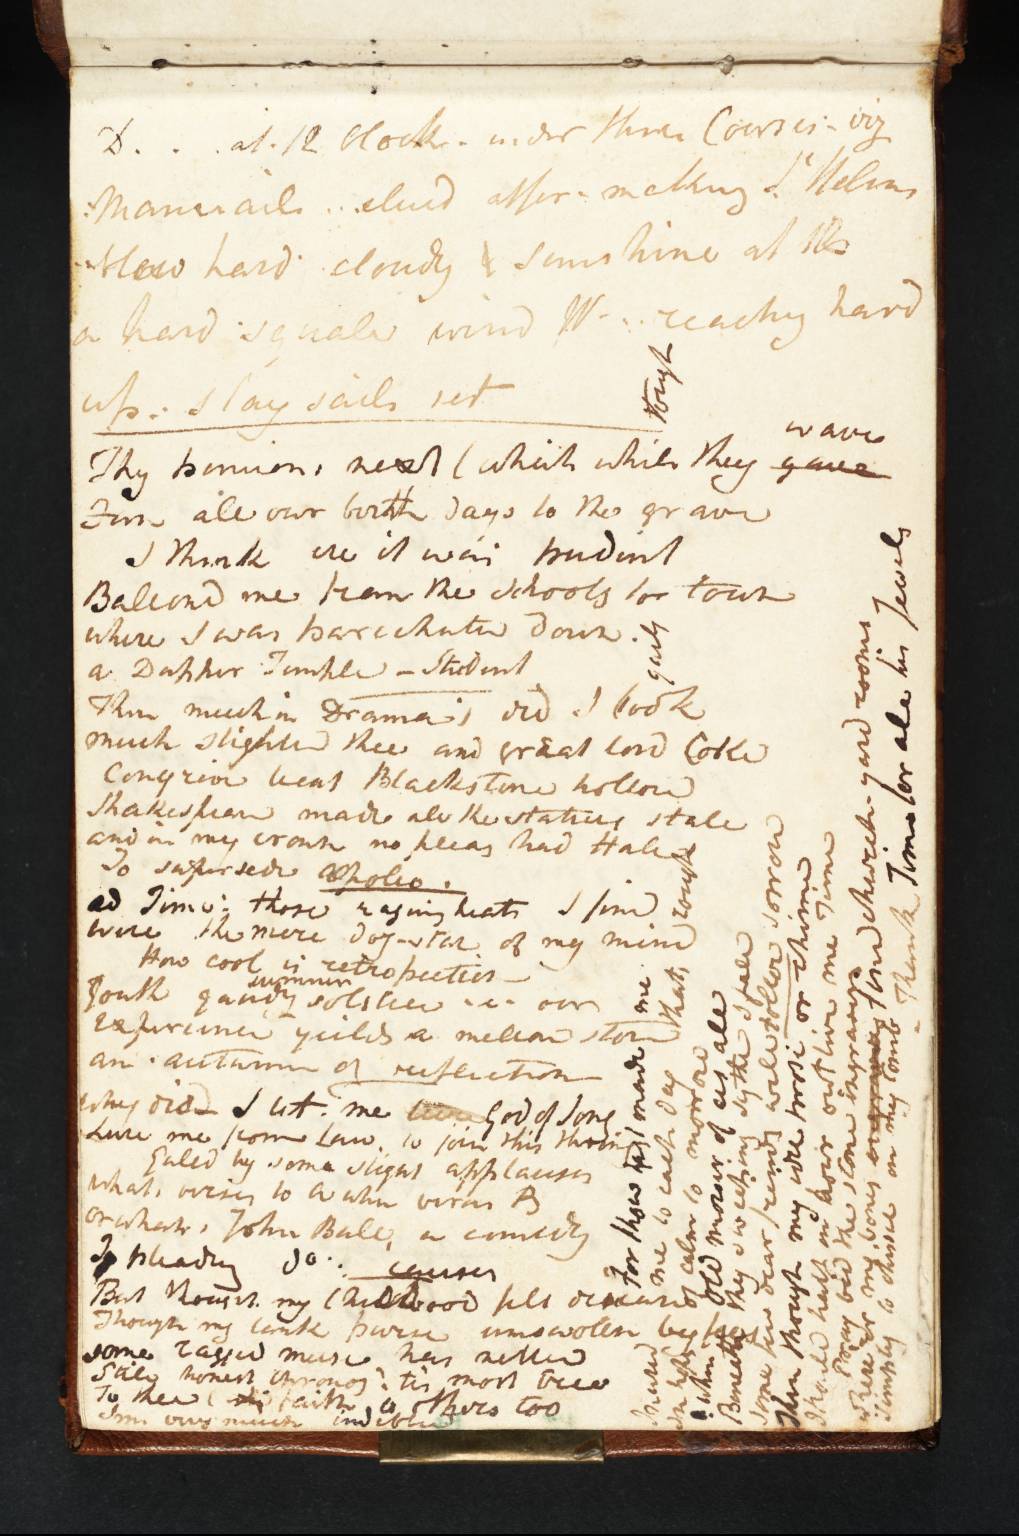 D. . . at. 12 Clock. under three Courses. viz
Mainsails
hard cloudy & sunshine at
a hard squale wind W - .. reachg hard
up. . stay sails set
Thy pinions next (which while they gave wave
Turn all our birth days to the grave
I think ere it was prudent
Baloond me from the schools to town
where I was parachute down
a Dapper Temple - Student
Then much in Dramas did I look
much slighted thee and great lord Coke
Congrive beat Blackstone hollow
Shakespear made all the statues stale
and in my crown no pleas had Hale
To supersede Apollo.
ad Time: those raging heats I find
were the mere dog-star of my mind
How cool is retrospection
Youth gaudy summer solstice oer
Experience yeilds a mellow store
an autumn of reflection
why did I let me God of Song
Lure me from Law to join this throng
Galed by some slight applauses
whats verses to A when versus B
or whats John Bull, a comedy
To pleadg Jo. causes
But though my childhood felt disease
Though my lank purse unswolen by fees
some ragged muse has netted
Still honest Chronos tis most true
To thee (faith to others too
I'm very much indebted
For thou hast made me gaily tough
Inured me to each day thats rough
In hopes of calm to morrow
when old mower of us all
Beneath thy sweeping sythe I fall
Some few dear friends will sorrow
Then though my idle prose or rhime
Should half an hour out live me Time
Pray bid the stone ingravers
Where er my bones find church-yard rooms
Simply to chissel on my tomb
- Thank Time for all his Favors